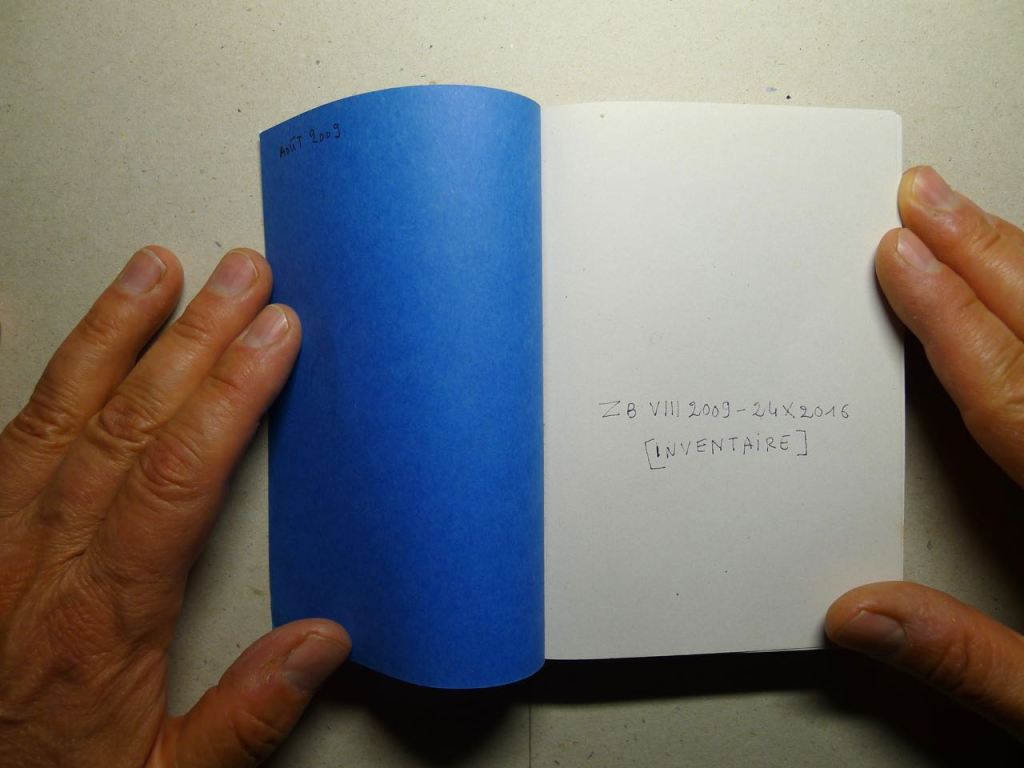 AOÛT 2009
ZB VIII 2009 - 24 X 2016
[INVENTAIRE]